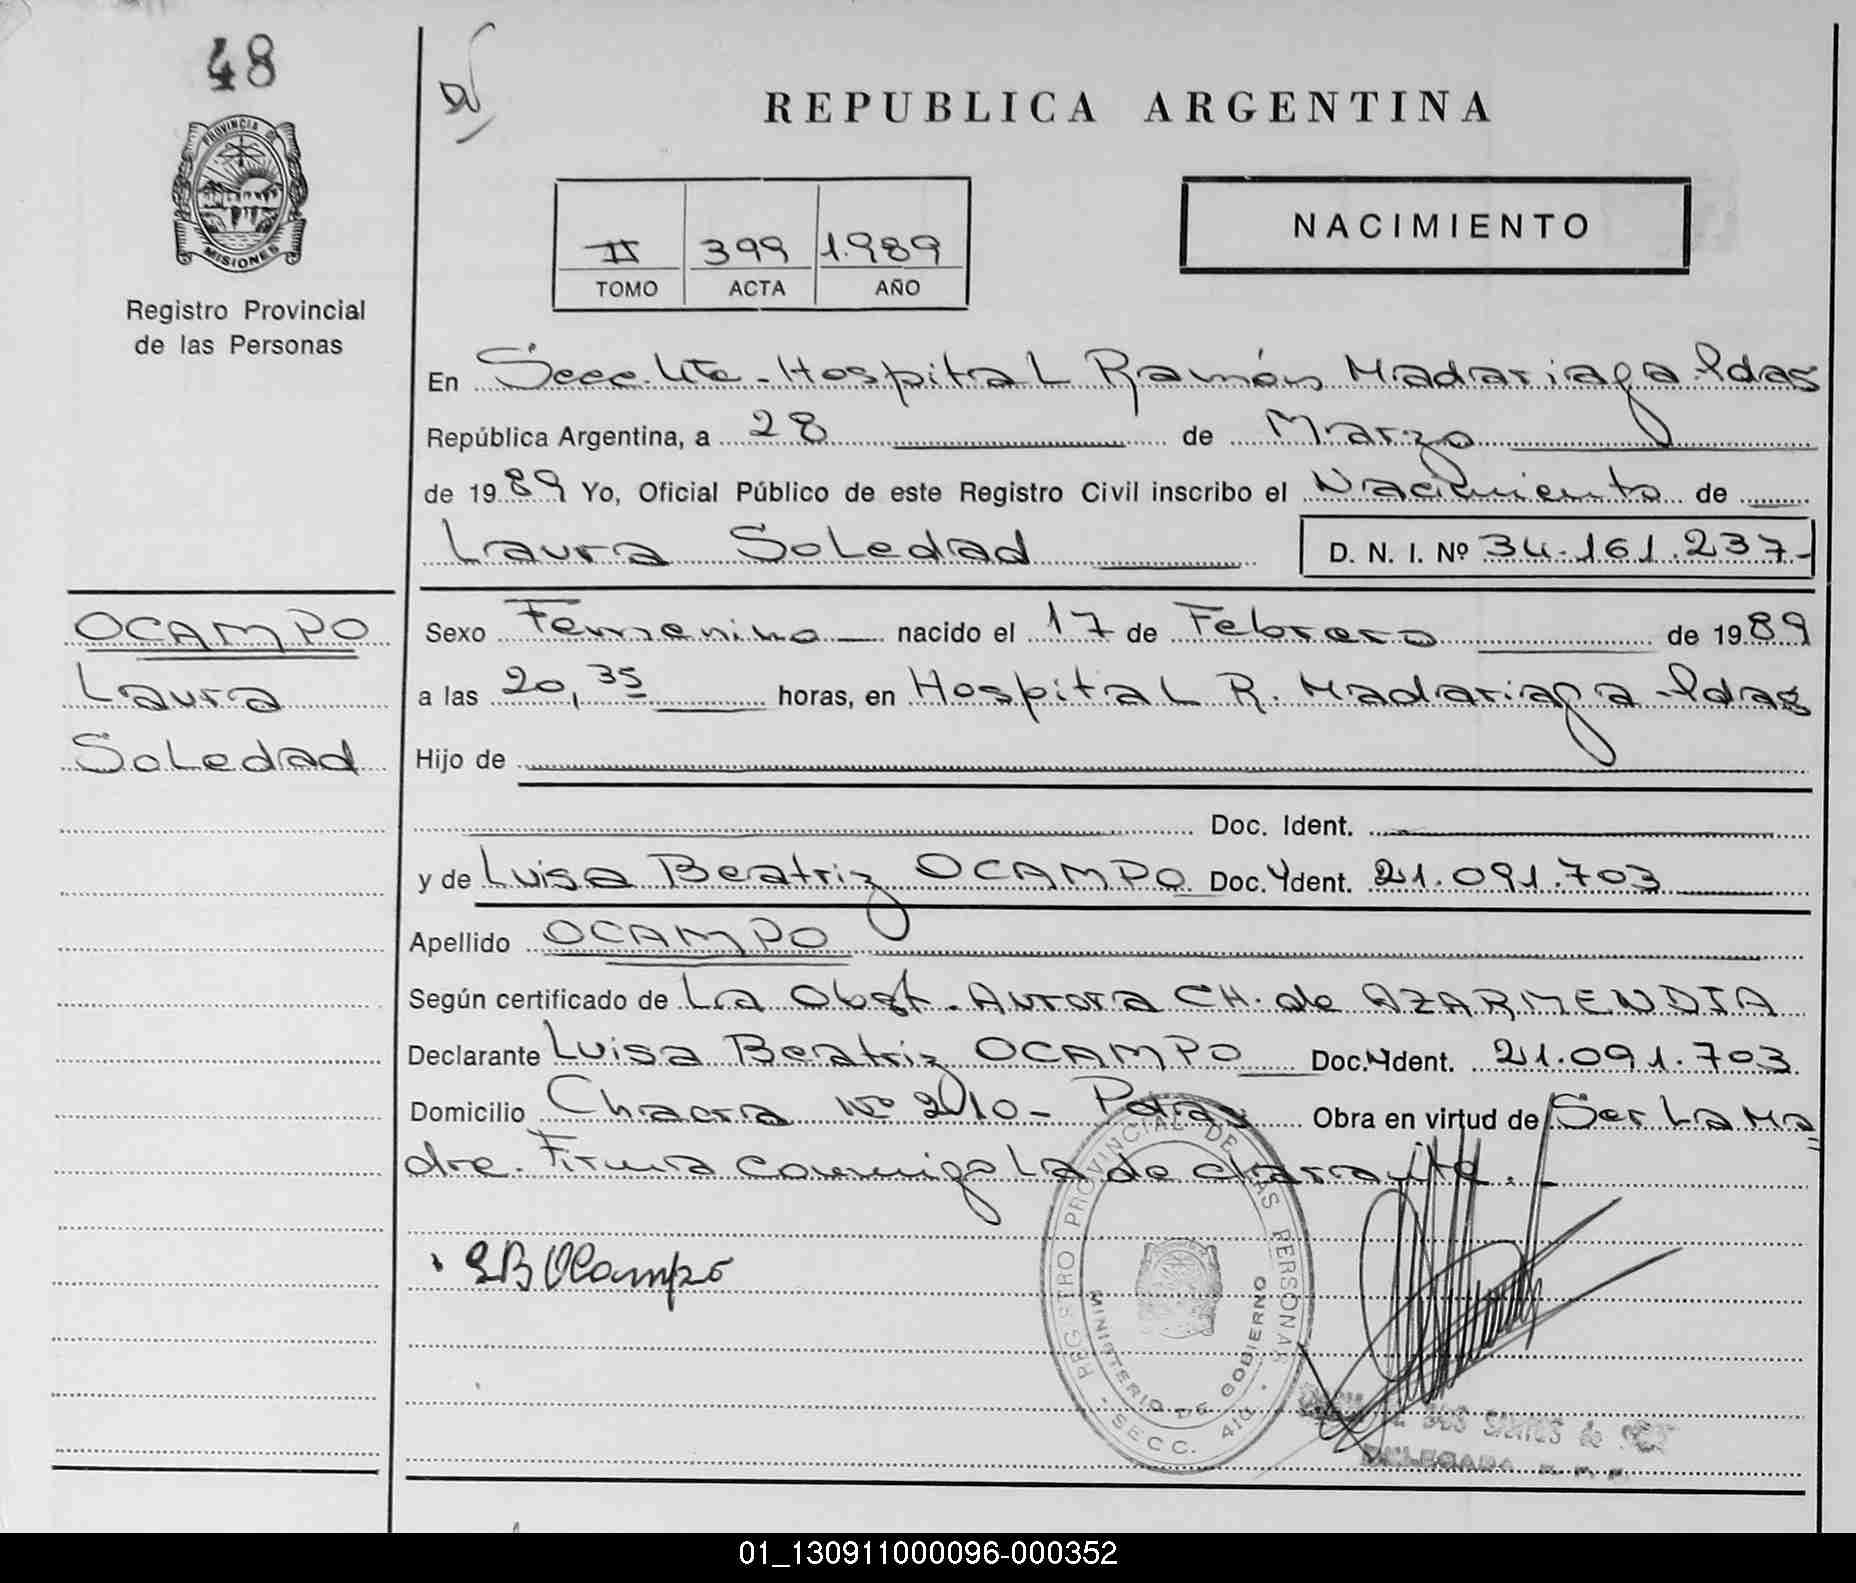 48
PROVINCIA DE
MISIONES
Registro Provincial
de las Personas
REPUBLICA ARGENTINA
II 399 1.989
TOMO ACTA AÑO
NACIMIENTO
En Secc. 4ta - Hospital Ramón Madariaga Pdas
República Argentina, a 28 de Marzo
de 1989 Yo, Oficial Público de este Registro Civil inscribo el Nacimiento de
Laura Soledad D. N. I. Nº 34.161.237-
OCAMPO
Laura
Soledad
Sexo Femenino nacido el 17 de Febrero de 1989
a las 20,35 horas, en Hospital R. Madariaga - Pdas
Hijo de
Doc. Ident.
y de Luisa Beatriz OCAMPO Doc. Ident. 21.091.703
Apellido OCAMPO
Según certificado de La Obst. Aurora CH. de AZARMENDIA
Declarante Luisa Beatriz OCAMPO Doc. Ident. 21.091.703
Domicilio Chacra Nº 210 - Pdas Obra en virtud de Ser La Ma
dre. Firma conmigo La declarante. -
LB Ocampo
REGISTRO PROVINCIAL DE LAS PERSONAS
MINISTERIO DE GOBIERNO
SECC. 4ta
DOS SANTOS de
DELEGADA R. P. P.
01_130911000096-000352